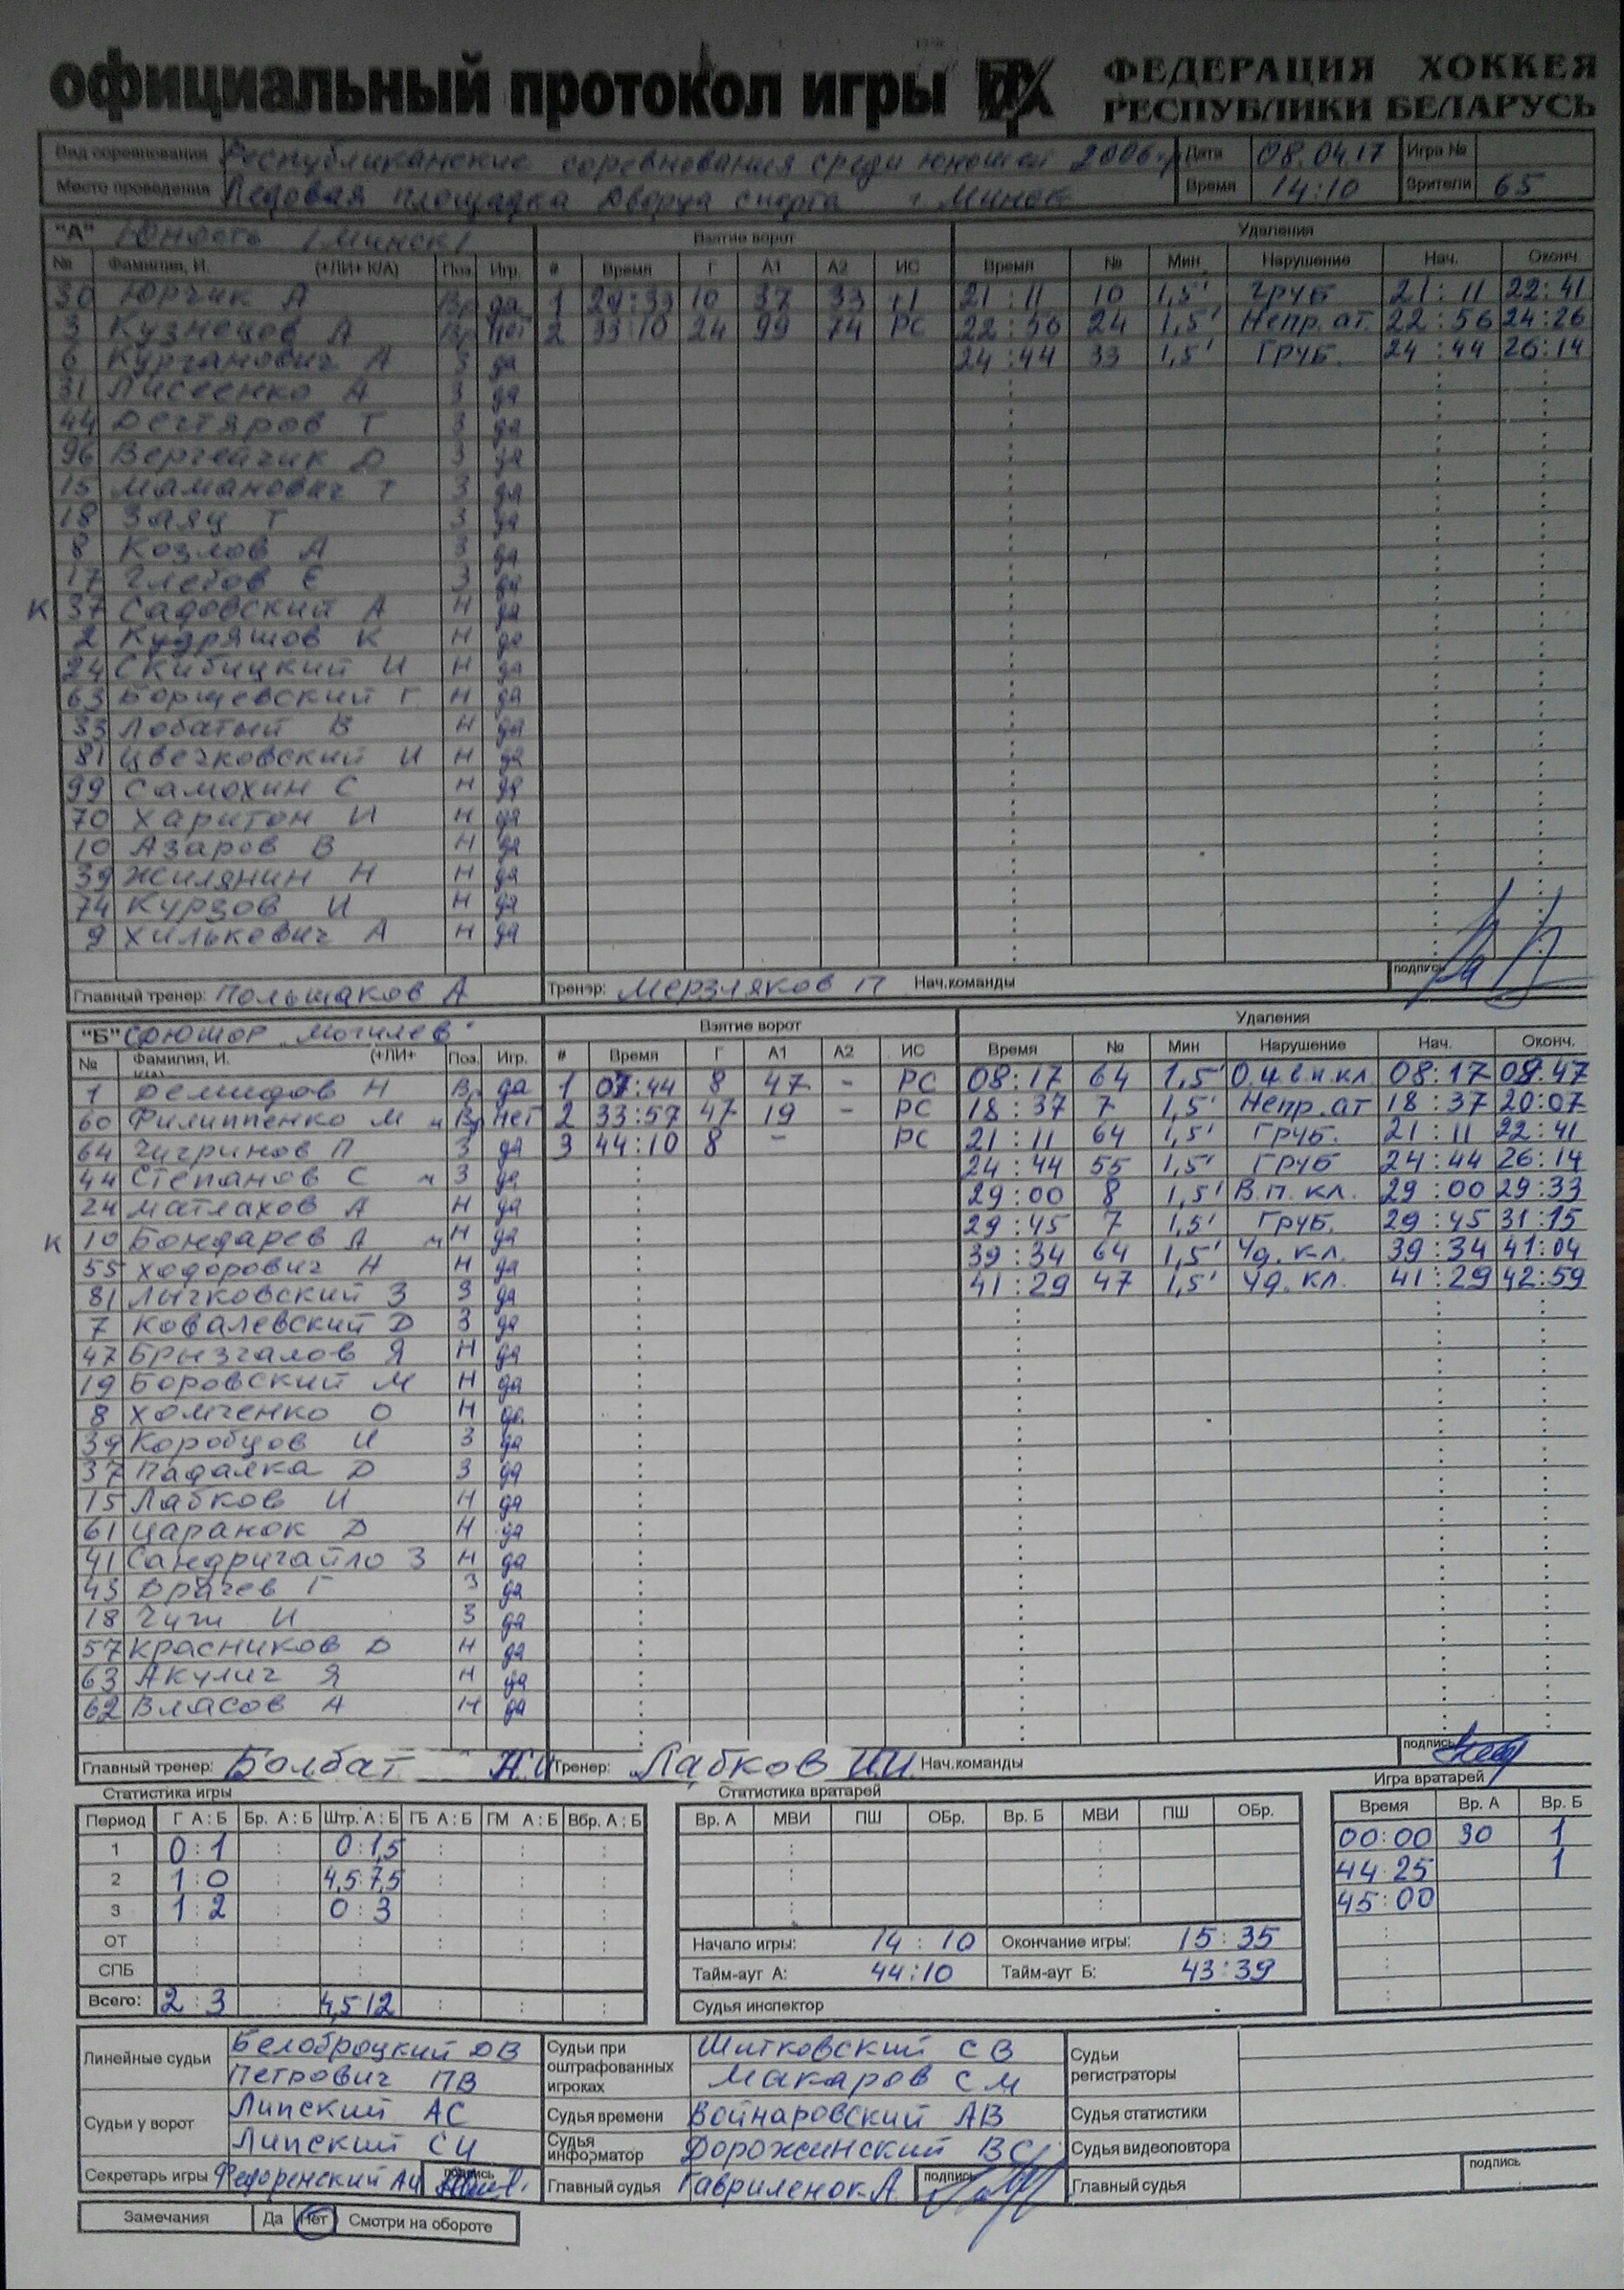 официальный протокол игры ФЕДЕРАЦИЯ ХОККЕЯ
РЕСПУБЛИКИ БЕЛАРУСЬ
Вид соревнования Республиканские соревнования среди юношей 2006 г.р Дата 08.04.17 Игра №
Место проведения Ледовая площадка Дворца спорта г. Минск Время 14:10 Зрители 65
"А" Юность /Минск/ Взятие ворот Удаления
№ Фамилия, И. (+ЛИ+ К/А) Поз. Игр. # Время Г А1 А2 ИС Время № Мин. Нарушение Нач. Оконч.
30 Юрчик А Вр да 1 29:33 10 37 33 21:11 10 1,5' Груб 21:11 22:41
3 Кузнецов А Вр Нет 2 33:10 24 99 74 РС 22:56 24 1,5' Непр.ат. 22:56 24:26
6 Курганович А З да 24:44 33 1,5' Груб. 24:44 26:14
31 Лисеенко А З да
44 Дегтяров Т З да
96 Вергейчик Д З да
15 Маманович Т З да
18 Заяц Т З да
8 Козлов А З да
17 Глебов Е З да
К 37 Садовский А Н да
2 Кудряшов К Н да
24 Скибицкий И Н да
63 Борщевский Г. Н да
33 Лобатый В Н да
81 Цвечковский И Н да
99 Самохин С Н да
70 Харитон И Н да
10 Азаров В Н да
39 Жилянин Н Н да
74 Курзов И Н да
9 Хилькевич А Н да
Главный тренер: Польшаков А Тренер: Мерзляков П Нач.команды подпись
"Б" СДЮШОР "Могилев" Взятие ворот Удаления
№ Фамилия, И. (+ЛИ+ К/А) Поз. Игр. # Время Г А1 А2 ИС Время № Мин Нарушение Нач. Оконч.
1 Демидов Н Вр да 1 07:44 8 47 - РС 08:17 64 1,5' О.и.в.п.кл. 08:17 09:47
60 Филиппенко М м Вр Нет 2 33:57 47 19 - РС 18:37 7 1,5' Непр.ат 18:37 20:07
64 Чигринов П З да 3 44:10 8 - РС 21:11 64 1,5' Груб. 21:11 22:41
44 Степанов С м З да 24:44 55 1,5' Груб 24:44 26:14
24 Матлахов А Н да 29:00 8 1,5' В.п.кл. 29:00 29:33
К 10 Бондарев А м Н да 29:45 7 1,5' Груб. 29:45 31:15
55 Ходорович Н Н да 39:34 64 1,5' Уд.кл. 39:34 41:04
81 Лычковский З З да 41:29 47 1,5' Уд.кл. 41:29 42:59
7 Ковалевский Д З да
47 Брызгалов Я Н да
19 Боровский М Н да
8 Хомченко О Н да
39 Коробцов И З да
37 Падалка Д З да
15 Лабков И Н да
61 Царанок Д Н да
41 Сандригайло З Н да
43 Драчев Г З да
18 Чиж И З да
57 Красников Д Н да
63 Акулич Я Н да
62 Власов А Н да
Главный тренер: Болбат Тренер: Лабков И.И. Нач.команды подпись
Статистика игры Статистика вратарей Игра вратарей
Период Г А:Б Бр. А:Б Штр. А:Б ГБ А:Б ГМ А:Б Вбр. А:Б Вр. А МВИ ПШ ОБр. Вр. Б МВИ ПШ ОБр. Время Вр. А Вр. Б
1 0:1 0:1,5 00:00 30 1
2 1:0 4,5:7,5 44:25 1
3 1:2 0:3 45:00
ОТ Начало игры: 14:10 Окончание игры: 15:35
СПБ Тайм-аут А: 44:10 Тайм-аут Б: 43:39
Всего: 2:3 4,5:12 Судья инспектор
Линейные судьи Белоброцкий ДВ Судьи при оштрафованных игроках Шитковский СВ Судьи регистраторы
Петрович ПВ Макаров СМ
Судьи у ворот Липский АС Судья времени Войнаровский АВ Судья статистики
Липский СИ Судья информатор Дорожинский ВС Судья видеоповтора
Секретарь игры Федоренский АИ подпись Главный судья Гавриленок А. подпись Главный судья подпись
Замечания Да Нет Смотри на обороте